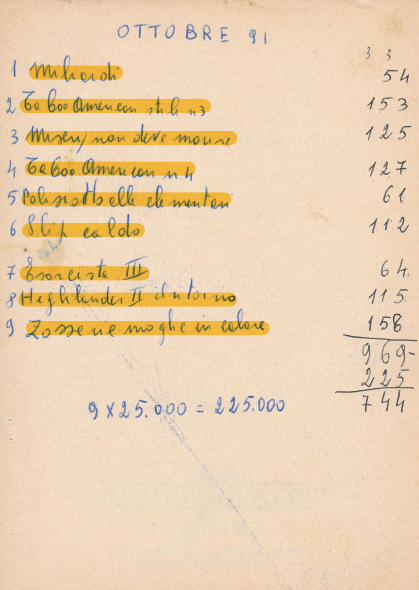 OTTOBRE 91
3 3
1 Miliardi 54
2 Taboo American style n3 153
3 Misery non deve morire 125
4 Taboo American n 4 127
5 Poliziotto alle elementari 61
6 Slip caldo 112
7 Esorcista III 64.
8 Highlander II il ritorno 115.
9 Zozzerie moglie in calore 158
969-
225
744
9 X 25.000 = 225.000